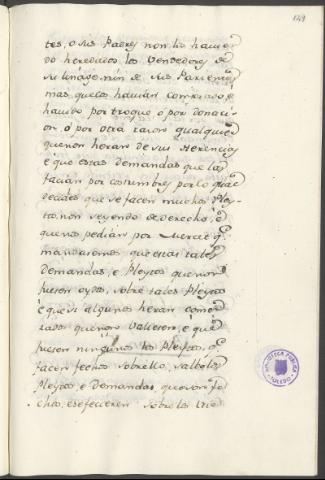 149
tes, o sus Padres non las havien
do heredados los Vendedores de
su linage nin de sus Parientes
mas que los havian comprado, o
havido por troque ó por donaci-
on, ó por otra razon qualquier
que non heran de sus Herencias
e que estas demandas que las
facian por costumbres por lo qual
decides que se facen muchos Pley-
tos, non seyendo de derecho, e
que nos pedian por Merced q.
mandasemos que estas tales
demandas, e Pleytos que non
fuesen oydos, sobre tales Pleytos
é que si algunos heran comen
zados que non valiesen, e que
fuesen ningunos los Pleytos, q
facen fechos sobrello, salbo los
Pleytos, e Demandas que son fe
chas, e se ficieren sobre los
BIBLIOTECA PUBLICA
TOLEDO